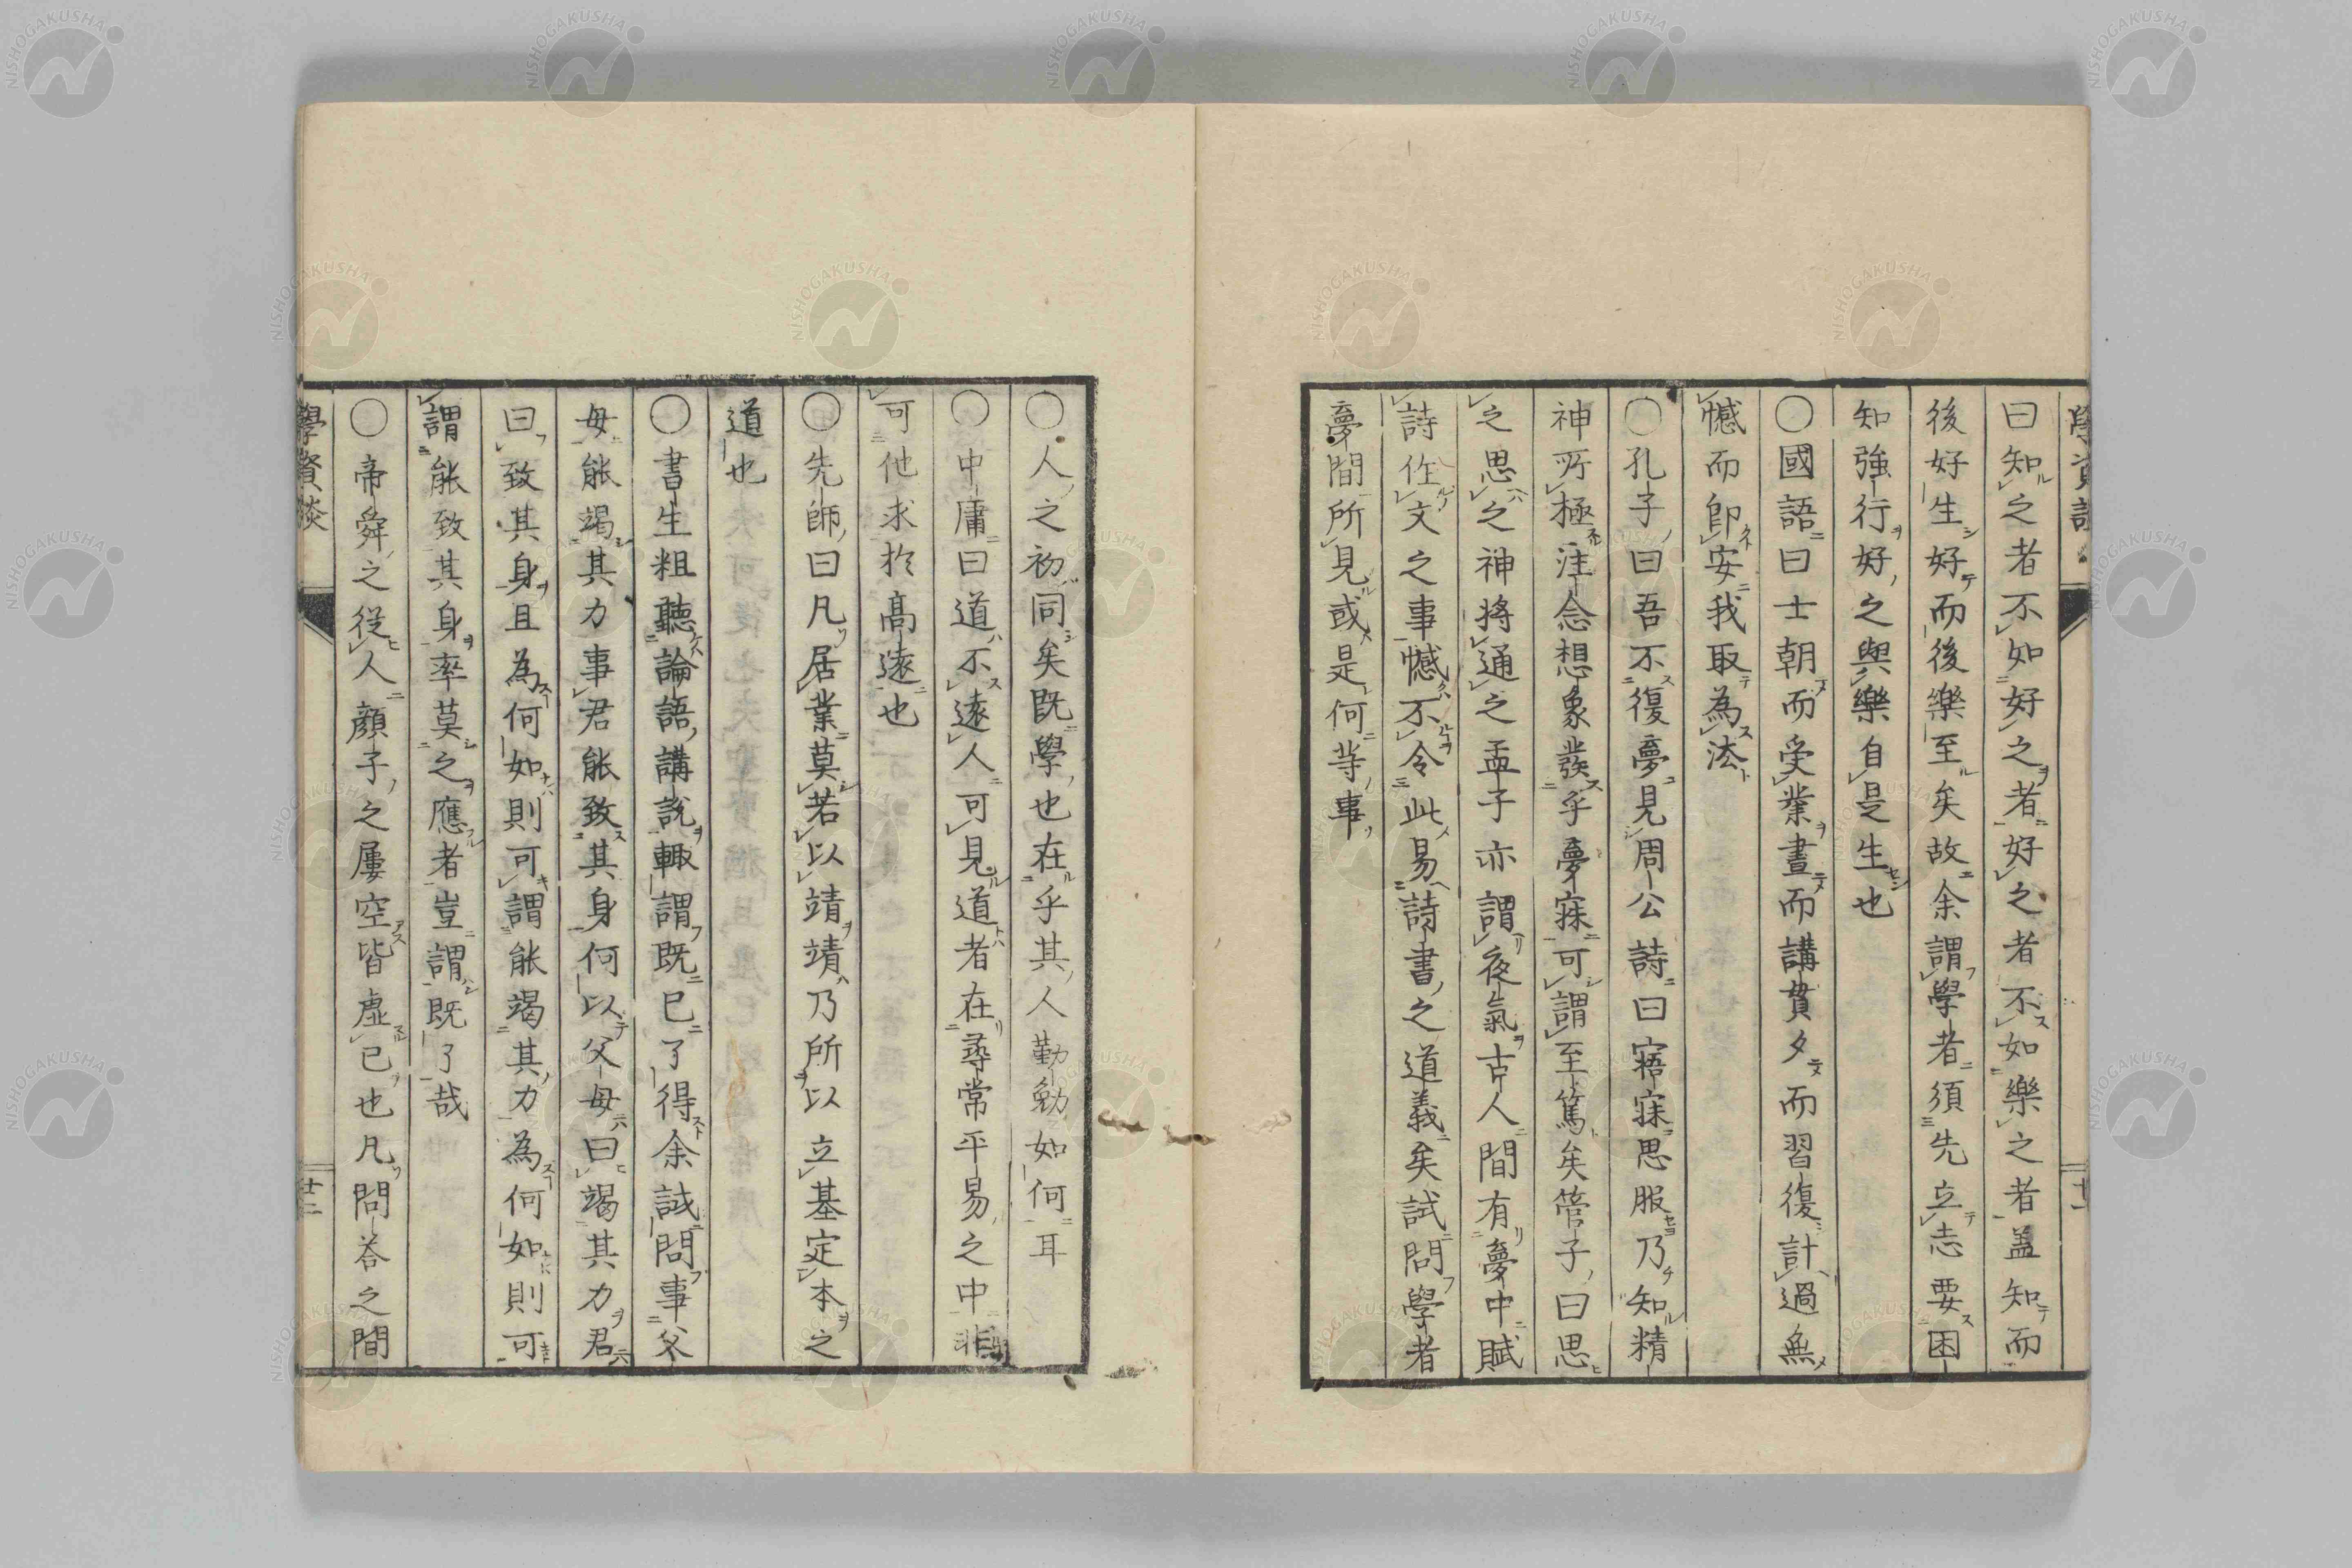 曰知之者不如好之者好之者不如樂之者盖知而
後好生好而後樂至矣故余謂學者須先立志要困
知強行好之與樂自是生也
〇國語曰士朝而受業晝而講貫夕而習復計過無
憾而卽安我取為法
〇孔子曰吾不復夢見周公詩曰寤寐思服乃知精
神所極注念想象發乎夢寐可謂至篤矣管子曰思
之思之神將通之孟子亦謂夜氣古人間有夢中賦
詩作文之事憾不令此易詩書之道義矣試問學者
夢間所見或是何等事
〇人之初同矣既學也在乎其人勤勉如何耳
〇中庸曰道不遠人可見道者在尋常平易之中非
可他求於高遠也
〇先師曰凡居業莫若以靖靖乃所以立基定本之
道也
〇書生粗聽論語講說輙謂既已了得余試問事父
母能竭其力事君能致其身何以父母曰竭其力君
曰致其身且為何如則可謂能竭其力為何如則可
謂能致其身率莫之應者豈謂既了哉
〇帝舜之從人顏子之屢空皆虛己也凡問荅之間
學資談
廿二